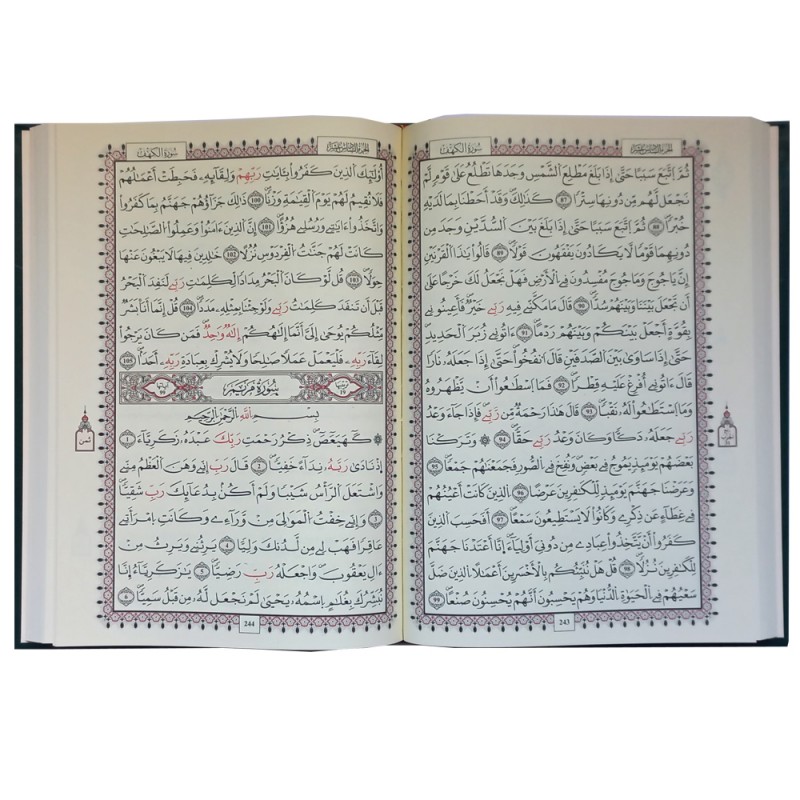 سورة الكهف
الجزء السادس عشر
ثُمَّ اَتَّبَعَ سَبَبًا حَتَّىٰ إِذَا بَلَغَ مَطْلِعَ اَلشَّمْسِ وَجَدَهَا تَطْلُعُ عَلَىٰ قَوْمٍ لَّمْ
نَجْعَل لَّهُم مِّن دُونِهَا سِتْرًا 87 كَذَٰلِكَ وَقَدَ اَحَطْنَا بِمَا لَدَيْهِ
خُبْرًا 88 ثُمَّ اَتَّبَعَ سَبَبًا حَتَّىٰ إِذَا بَلَغَ بَيْنَ اَلسُّدَّيْنِ وَجَدَ مِن
دُونِهِمَا قَوْمًا لَّا يَكَادُونَ يَفْقَهُونَ قَوْلًا 89 قَالُواْ يَٰذَا اَلْقَرْنَيْنِ
إِنَّ يَاجُوجَ وَمَاجُوجَ مُفْسِدُونَ فِي اِلْأَرْضِ فَهَلْ نَجْعَلُ لَكَ خَرْجًا عَلَىٰ
أَن تَجْعَلَ بَيْنَنَا وَبَيْنَهُمْ سُدًّا 90 قَالَ مَا مَكَّنِّي فِيهِ رَبِّي خَيْرٌ فَأَعِينُونِي
بِقُوَّةٍ اَجْعَلْ بَيْنَكُمْ وَبَيْنَهُمْ رَدْمًا 91 ءَاتُونِي زُبَرَ اَلْحَدِيدِ
حَتَّىٰ إِذَا سَاوَىٰ بَيْنَ اَلصَّدَفَيْنِ قَالَ اَنفُخُواْ حَتَّىٰ إِذَا جَعَلَهُۥ نَارًا
قَالَ ءَاتُونِي أُفْرِغْ عَلَيْهِ قِطْرًا 92 فَمَا اَسْطَٰعُواْ أَنْ يَّظْهَرُوهُ
وَمَا اَسْتَطَٰعُواْ لَهُۥ نَقْبًا 93 قَالَ هَٰذَا رَحْمَةٌ مِّن رَّبِّي فَإِذَا جَآءَ وَعْدُ
رَبِّي جَعَلَهُۥ دَكًّا وَكَانَ وَعْدُ رَبِّي حَقًّا 94 وَتَرَكْنَا
بَعْضَهُمْ يَوْمَئِذٍ يَمُوجُ فِي بَعْضٍ وَنُفِخَ فِي اِلصُّورِ فَجَمَعْنَٰهُمْ جَمْعًا 95
وَعَرَضْنَا جَهَنَّمَ يَوْمَئِذٍ لِّلْكَٰفِرِينَ عَرْضًا 96 اِلَّذِينَ كَانَتَ اَعْيُنُهُمْ
فِي غِطَآءٍ عَن ذِكْرِي وَكَانُواْ لَا يَسْتَطِيعُونَ سَمْعًا 97 أَفَحَسِبَ اَلَّذِينَ
كَفَرُواْ أَنْ يَّتَّخِذُواْ عِبَادِي مِن دُونِيَ أَوْلِيَآءَ اِنَّا أَعْتَدْنَا جَهَنَّمَ
لِلْكَٰفِرِينَ نُزُلًا 98 قُلْ هَلْ نُنَبِّئُكُم بِالْأَخْسَرِينَ أَعْمَٰلًا اَلَّذِينَ ضَلَّ
سَعْيُهُمْ فِي اِلْحَيَوٰةِ اِلدُّنْيَا وَهُمْ يَحْسِبُونَ أَنَّهُمْ يُحْسِنُونَ صُنْعًا 99
243
سورة الكهف
الجزء السادس عشر
أُوْلَٰٓئِكَ اَلَّذِينَ كَفَرُواْ بِـَٔايَٰتِ رَبِّهِمْ وَلِقَآئِهِۦ فَحَبِطَتَ اَعْمَٰلُهُمْ
فَلَا نُقِيمُ لَهُمْ يَوْمَ اَلْقِيَٰمَةِ وَزْنًا 100 ذَٰلِكَ جَزَآؤُهُمْ جَهَنَّمُ بِمَا كَفَرُواْ
وَاتَّخَذُواْ ءَايَٰتِي وَرُسُلِي هُزُؤًا 101 إِنَّ اَلَّذِينَ ءَامَنُواْ وَعَمِلُواْ اُلصَّٰلِحَٰتِ
كَانَتْ لَهُمْ جَنَّٰتُ اُلْفِرْدَوْسِ نُزُلًا 102 خَٰلِدِينَ فِيهَا لَا يَبْغُونَ عَنْهَا
حِوَلًا 103 قُل لَّوْ كَانَ اَلْبَحْرُ مِدَادًا لِّكَلِمَٰتِ رَبِّي لَنَفِدَ اَلْبَحْرُ
قَبْلَ أَن تَنفَدَ كَلِمَٰتُ رَبِّي وَلَوْ جِئْنَا بِمِثْلِهِۦ مَدَدًا 104 قُلِ اِنَّمَا أَنَا بَشَرٌ
مِّثْلُكُمْ يُوحَىٰ إِلَيَّ أَنَّمَا إِلَٰهُكُمُ إِلَٰهٌ وَٰحِدٌ فَمَن كَانَ يَرْجُواْ
لِقَآءَ رَبِّهِۦ فَلْيَعْمَلْ عَمَلًا صَٰلِحًا وَلَا يُشْرِكْ بِعِبَادَةِ رَبِّهِۦ أَحَدًا 105
سورة مريم
بِسْمِ اللَّهِ الرَّحْمَٰنِ الرَّحِيمِ
كَٓهيعَٓصَٓ ذِكْرُ رَحْمَتِ رَبِّكَ عَبْدَهُۥ زَكَرِيَّآءَ 1
إِذْ نَادَىٰ رَبَّهُۥ نِدَآءً خَفِيًّا 2 قَالَ رَبِّ إِنِّي وَهَنَ اَلْعَظْمُ مِنِّي
وَاشْتَعَلَ اَلرَّأْسُ شَيْبًا وَلَمَ اَكُنۢ بِدُعَآئِكَ رَبِّ شَقِيًّا
3 وَإِنِّي خِفْتُ اُلْمَوَٰلِيَ مِنْ وَّرَآءِي وَكَانَتِ اِمْرَأَتِي
عَاقِرًا فَهَبْ لِي مِن لَّدُنكَ وَلِيًّا 4 يَرِثُنِي وَيَرِثُ مِنَ
اٰلِ يَعْقُوبَ وَاجْعَلْهُ رَبِّ رَضِيًّا 5 يَٰزَكَرِيَّآءُ اِنَّا
نُبَشِّرُكَ بِغُلَٰمٍ اِسْمُهُۥ يَحْيَىٰ لَمْ نَجْعَل لَّهُۥ مِن قَبْلُ سَمِيًّا 6
ثمن
244